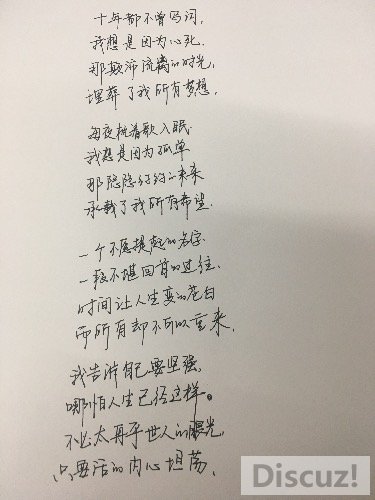 十年都不曾写词,
我想是因为心死.
那颠沛流离的时光,
埋葬了我所有梦想.
每夜枕着歌入眠
我想是因为孤单
那隐隐约约的未来
承载了我所有希望.
一个不愿提起的名字.
一段不堪回首的过往.
时间让人生变的花白
而所有却不可以重来.
我告诉自己要坚强,
哪怕人生已经这样。
不必太再乎世人的眼光
只要活的内心坦荡.
Discuz!